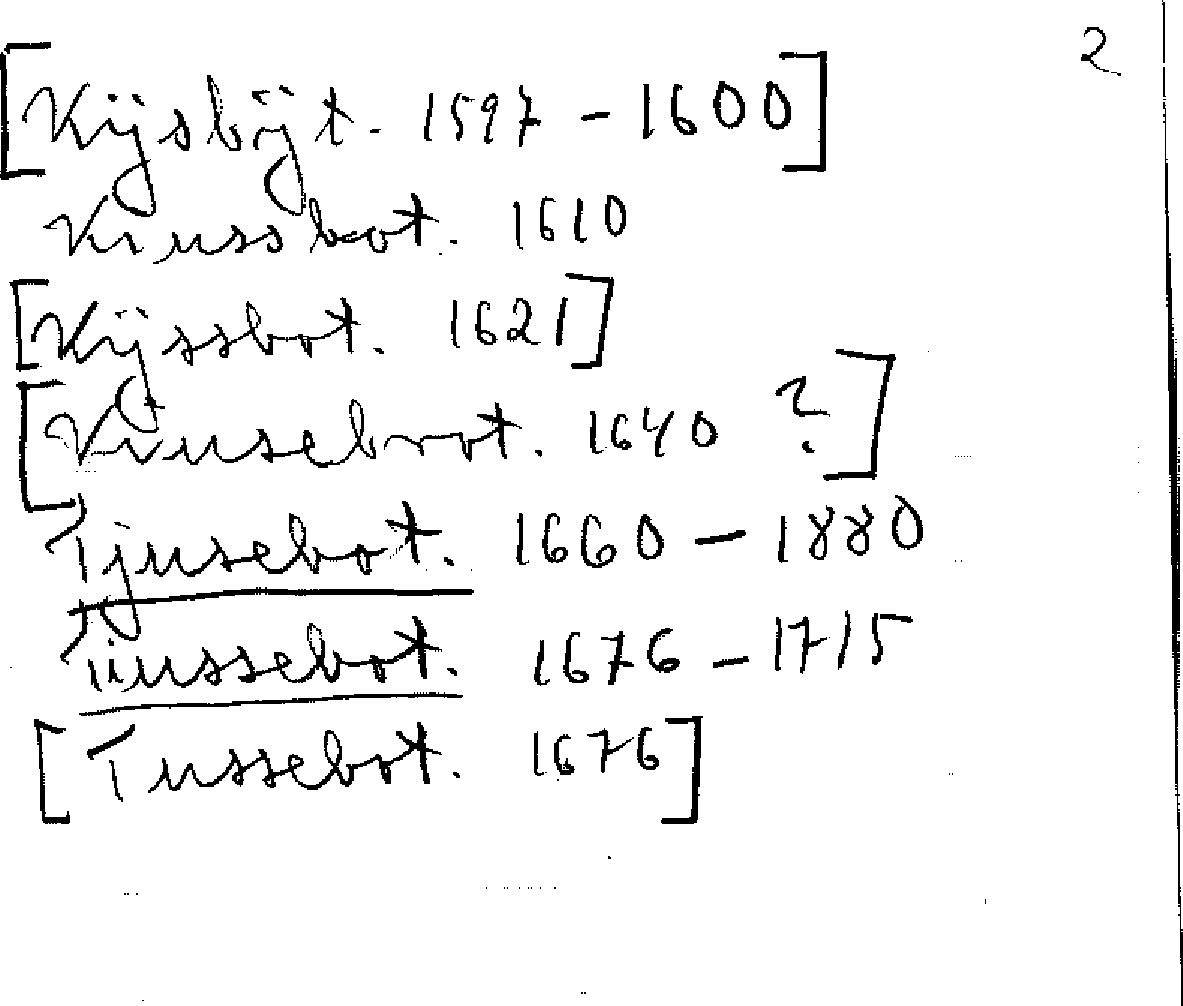 2
[Kÿsbÿt. 1597 - 1600]
Kiussbot. 1610
[Kÿssbot. 1621]
[Kiusebot. 1640 ?]
Tjusebot. 1660 - 1880
Tiussebot. 1676 - 1715
[Tussebot. 1676]